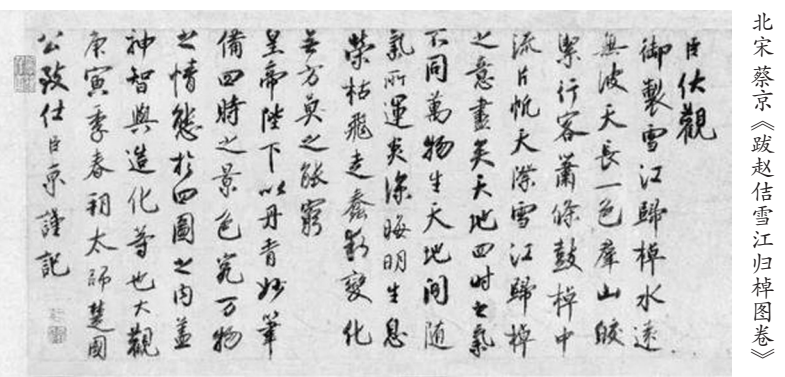 臣伏觀
御製雪江歸棹水遠
無波天長一色羣山皎
潔行客蕭條鼓棹中
流片帆天際雪江歸棹
之意盡矣天地四時之氣
不同萬物生天地間隨
氣所運炎涼晦明生息
榮枯飛走蠢動變化
無方莫之能窮
皇帝陛下以丹青妙筆
備四時之景色究万物
之情態於四圖之内蓋
神智與造化等也大觀
庚寅季春朔太師楚國
公致仕臣京謹記
北宋 蔡京《跋赵佶雪江归棹图卷》